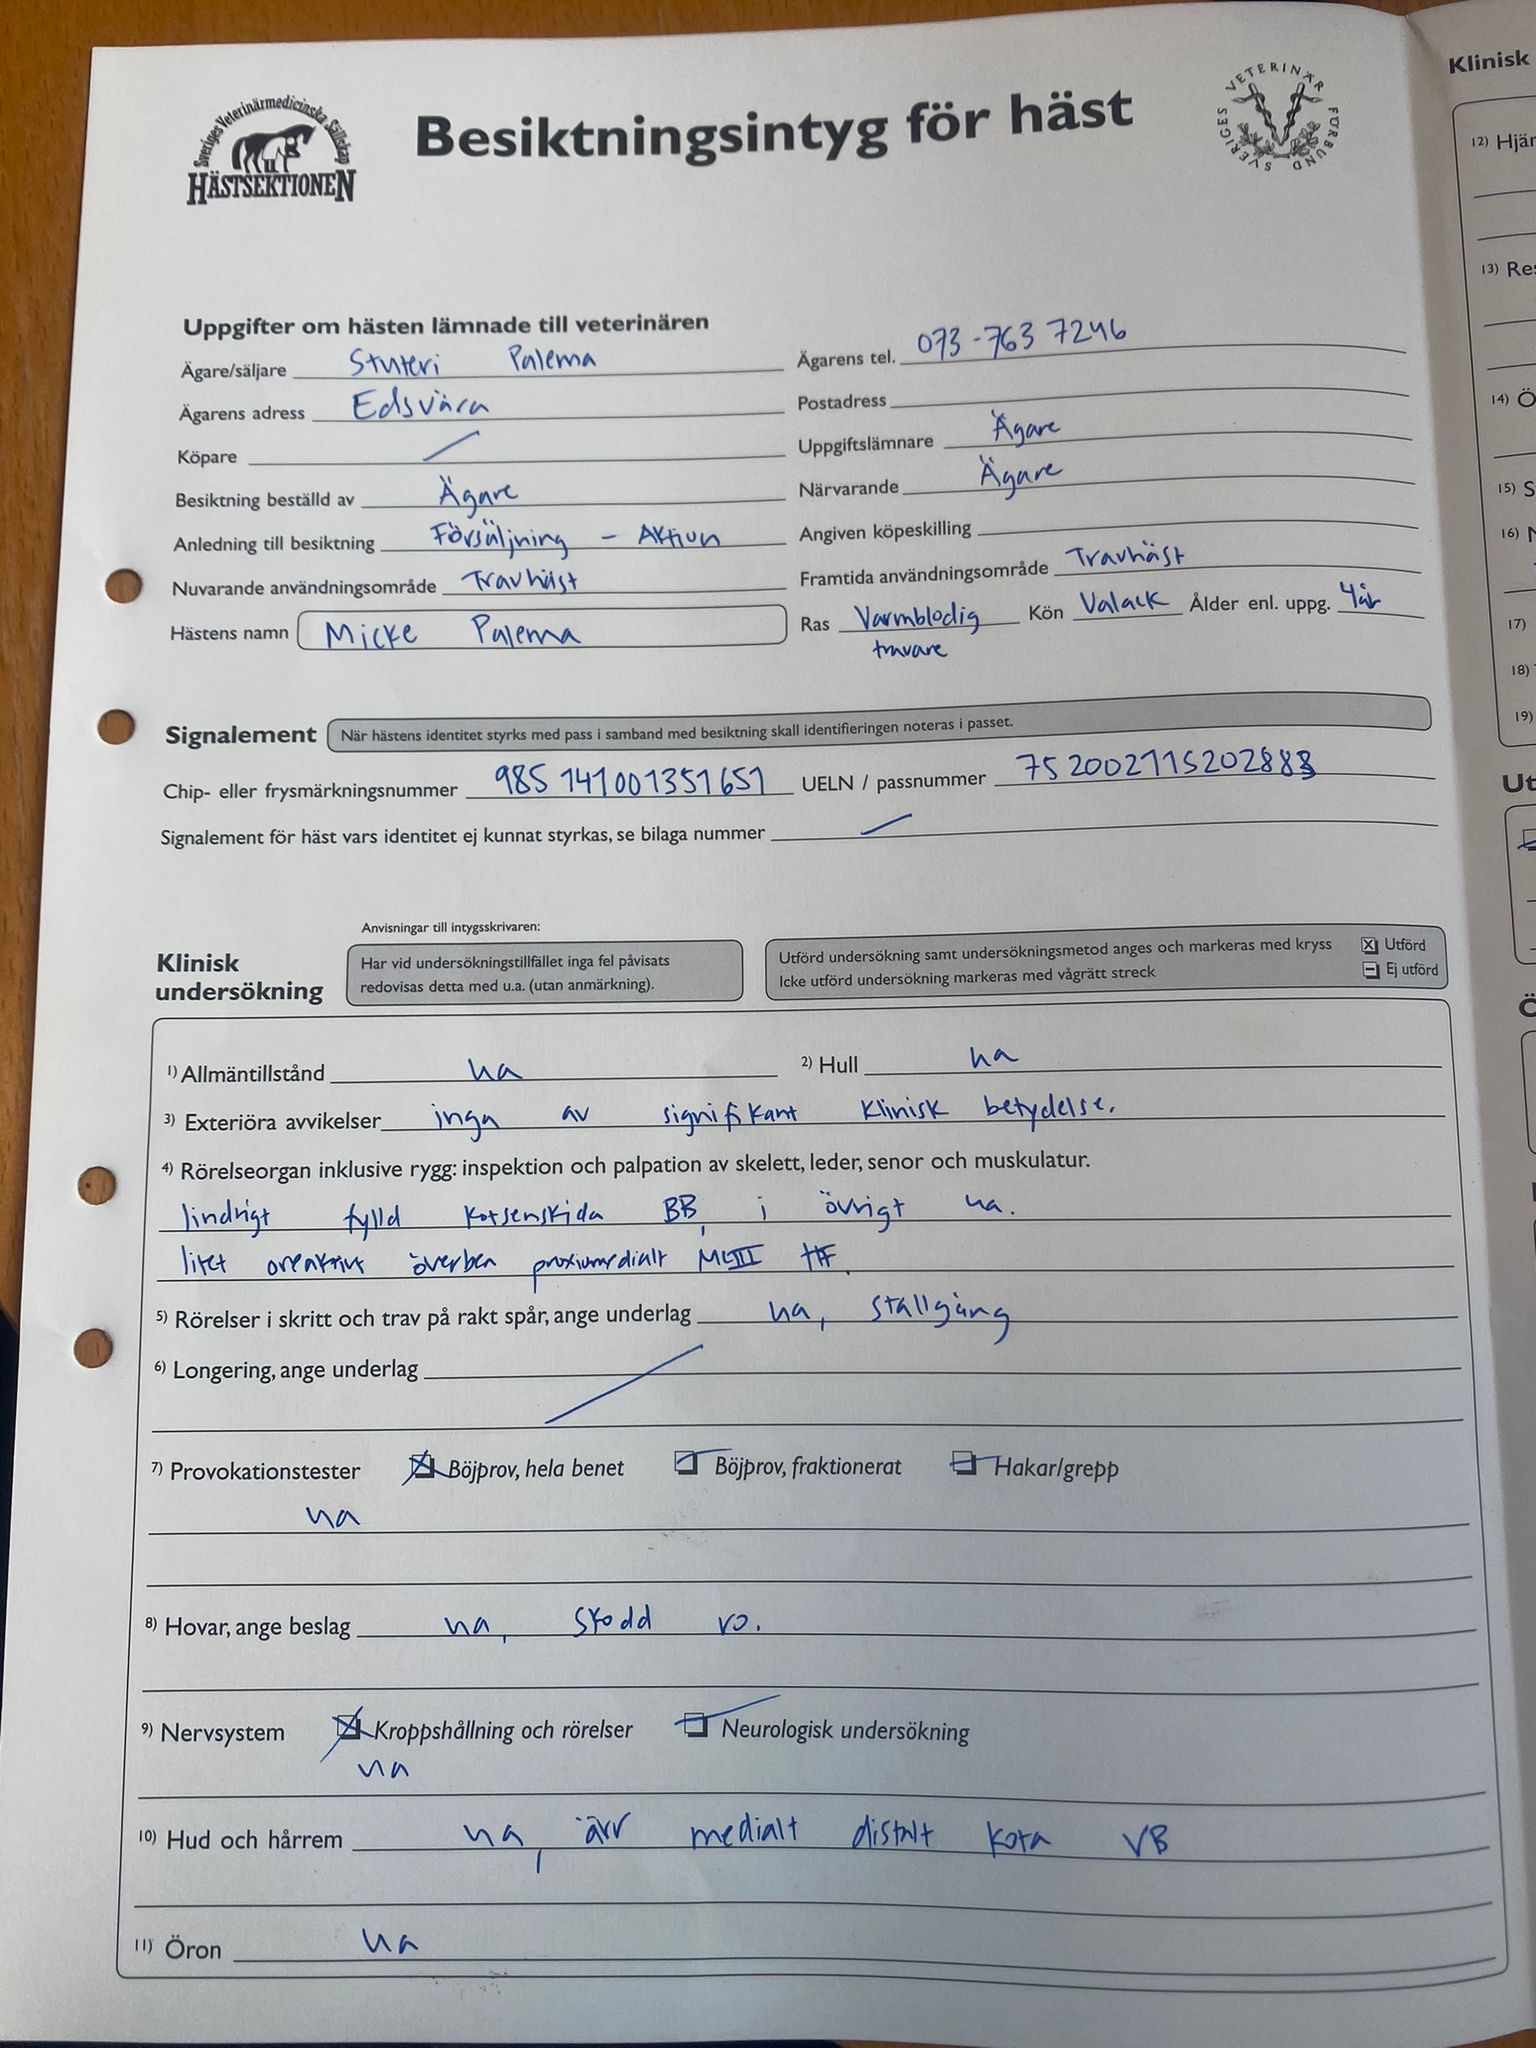 Sveriges Veterinärmedicinska Sällskap
HÄSTSEKTIONEN
Besiktningsintyg för häst
SVERIGES VETERINÄR FÖRBUND
Uppgifter om hästen lämnade till veterinären
Ägare/säljare Stuteri Palema Ägarens tel. 073-763 7246
Ägarens adress Edsvära Postadress
Köpare Uppgiftslämnare Ägare
Besiktning beställd av Ägare Närvarande Ägare
Anledning till besiktning Försäljning - Aktion Angiven köpeskilling
Nuvarande användningsområde Travhäst Framtida användningsområde Travhäst
Hästens namn Micke Palema Ras Varmblodig Kön Valack Ålder enl. uppg. 4år
travare
Signalement När hästens identitet styrks med pass i samband med besiktning skall identifieringen noteras i passet.
Chip- eller frysmärkningsnummer 985 141001351651 UELN / passnummer
Signalement för häst vars identitet ej kunnat styrkas, se bilaga nummer
Anvisningar till intygsskrivaren:
Klinisk undersökning
Har vid undersökningstillfället inga fel påvisats
redovisas detta med u.a. (utan anmärkning).
Utförd undersökning samt undersökningsmetod anges och markeras med kryss Utförd
Icke utförd undersökning markeras med vågrätt streck Ej utförd
1) Allmäntillstånd ua 2) Hull ua
3) Exteriöra avvikelser inga av signifikant klinisk betydelse.
4) Rörelseorgan inklusive rygg: inspektion och palpation av skelett, leder, senor och muskulatur.
lindrigt fylld kotsenskida BB, i övrigt ua.
litet oreaktivt överben proximedialt McIII HF.
5) Rörelser i skritt och trav på rakt spår, ange underlag ua, stallgång
6) Longering, ange underlag
7) Provokationstester Böjprov, hela benet Böjprov, fraktionerat Hakar/grepp
ua
8) Hovar, ange beslag ua, skodd vo.
9) Nervsystem Kroppshållning och rörelser Neurologisk undersökning
ua
10) Hud och hårrem ua, ärr medialt distalt kota VB
11) Öron ua
Klinisk
12) Hjär
13) Re
14) Ö
15) S
16)
17)
18)
19)
Ut